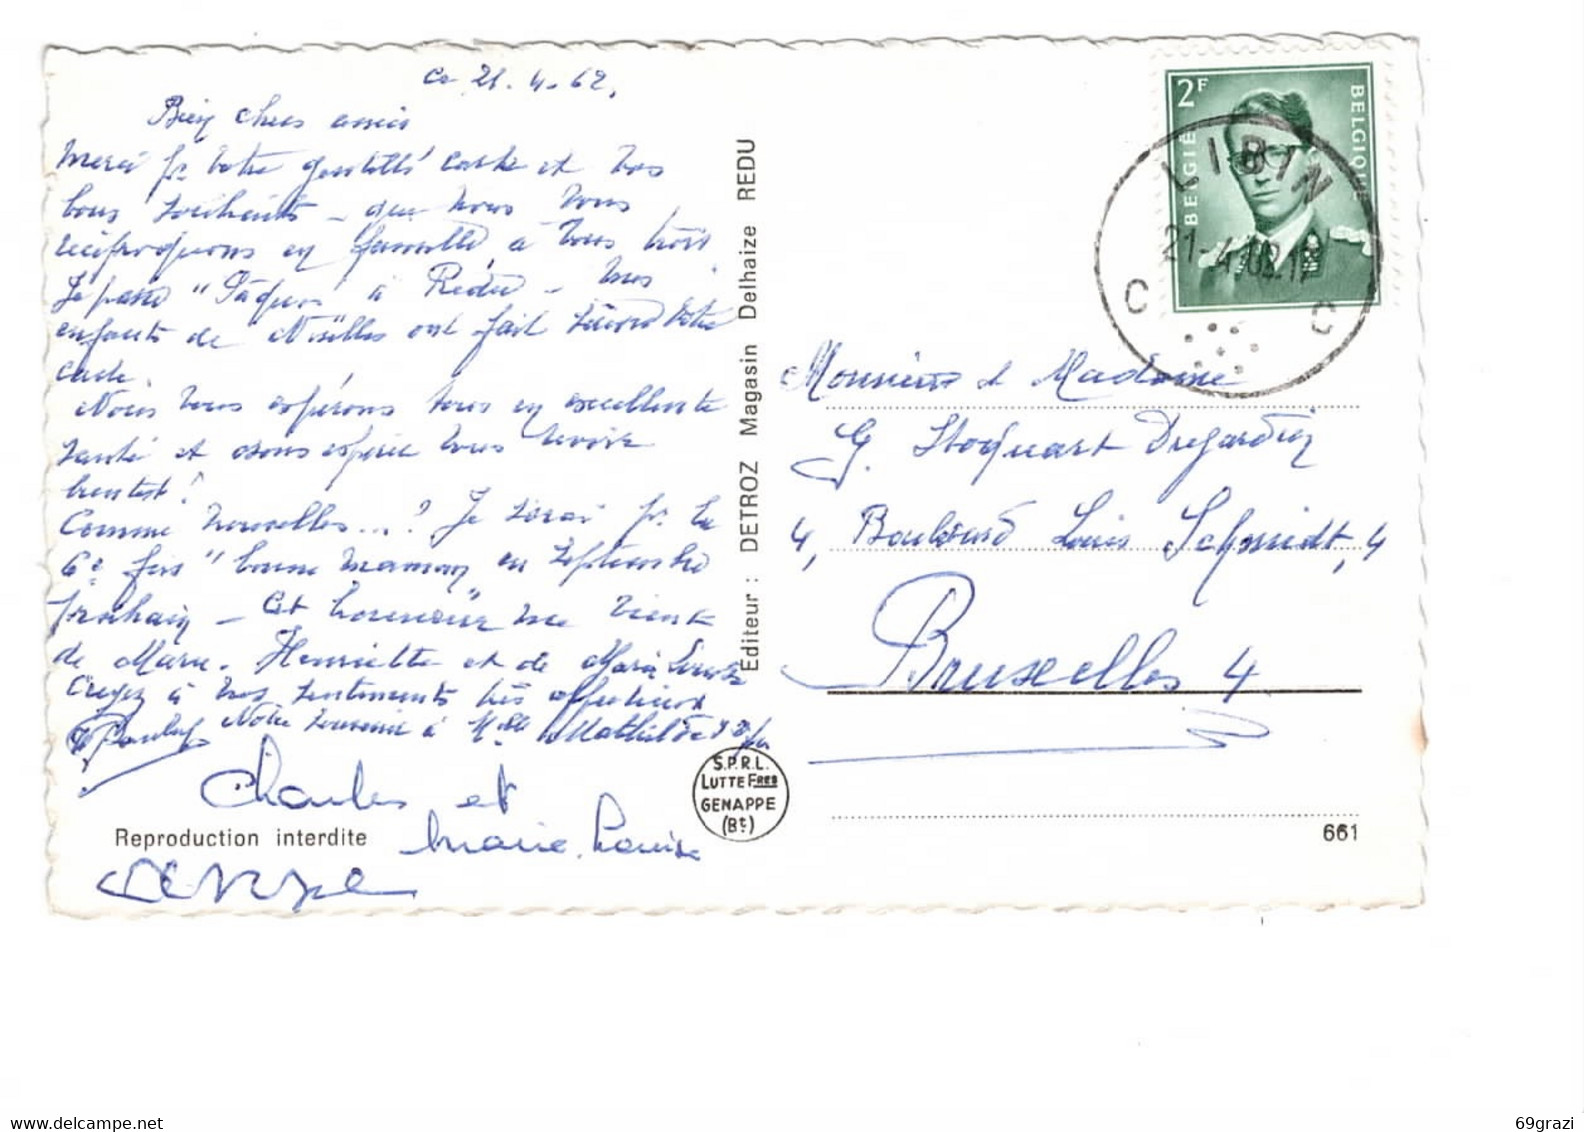 Ce 21.4.62.
Bien chers amis
Merci pr votre gentille carte et vos
bons souhaits - que nous vous
réciproquons en famille à vous trois
Je passe "Pâques" à Redu - mes
enfants de Nivelles ont fait suivre votre
carte.
Nous vous espérons tous en excellente
santé et osons espérer vous revoir
bientôt!
Comme nouvelles...? Je serai pr la
6e fois "bonne maman" en septembre
prochain - Cet honneur me vient
de Marie. Henriette et de Marie Louise
Croyez à nos sentiments très affectueux
Notre souvenir à Mlle Mathilde
Charles et
Marie Louise
Reproduction interdite
Editeur : DETROZ Magasin Delhaize REDU
S.P.R.L.
LUTTE FRES
GENAPPE
(Bt)
2F
BELGIË
BELGIQUE
LIBIN
21-4-62
C C
Monsieur & Madame
G. Stoquart Dujardin
4, Boulevard Louis Schmidt, 4
Bruxelles 4
661
69grazi
www.delcampe.net